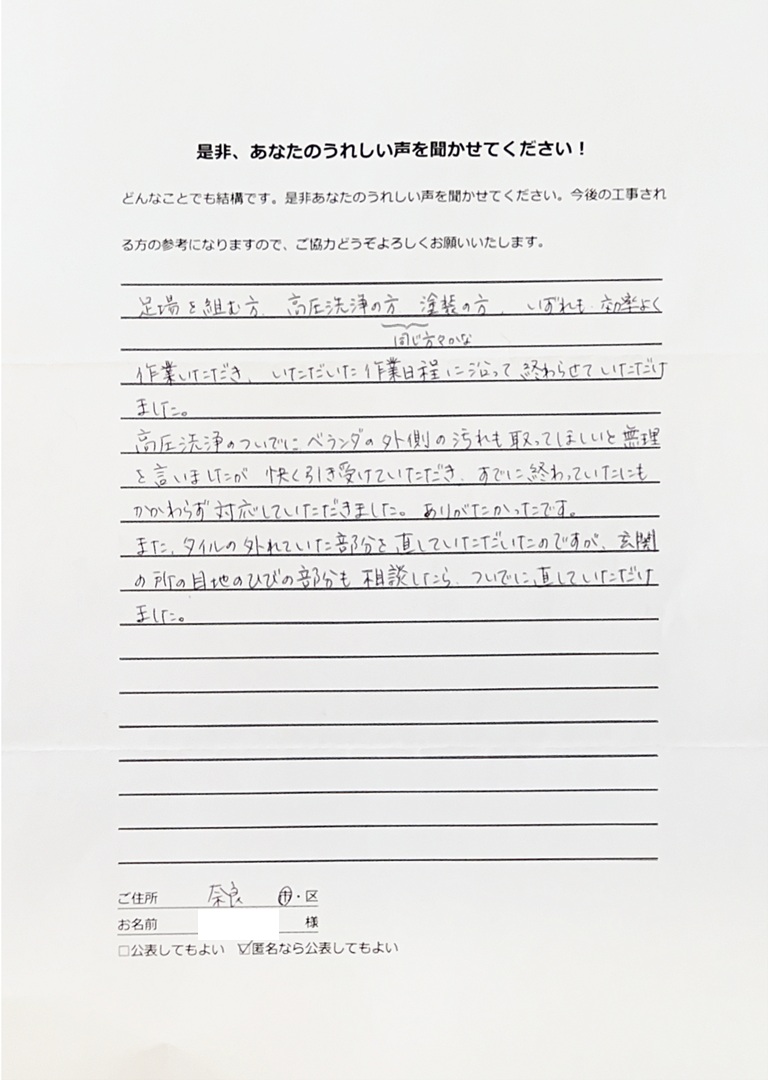 是非、あなたのうれしい声を聞かせてください！
どんなことでも結構です。是非あなたのうれしい声を聞かせてください。今後の工事され
る方の参考になりますので、ご協力どうぞよろしくお願いいたします。
足場を組む方、高圧洗浄の方 塗装の方、いずれも 効率よく
同じ方々かな
作業いただき、いただいた作業日程に沿って終わらせていただけ
ました。
高圧洗浄のついでにベランダの外側の汚れも取ってほしいと無理
を言いましたが 快く引き受けていただき、すでに終わっていたにも
かかわらず対応していただきました。ありがたかったです。
また、タイルの外れていた部分を直していただいたのですが、玄関
の所の目地のひびの部分も相談したら、ついでに直していただけ
ました。
ご住所 奈良 市・区
お名前 様
□公表してもよい ☑匿名なら公表してもよい